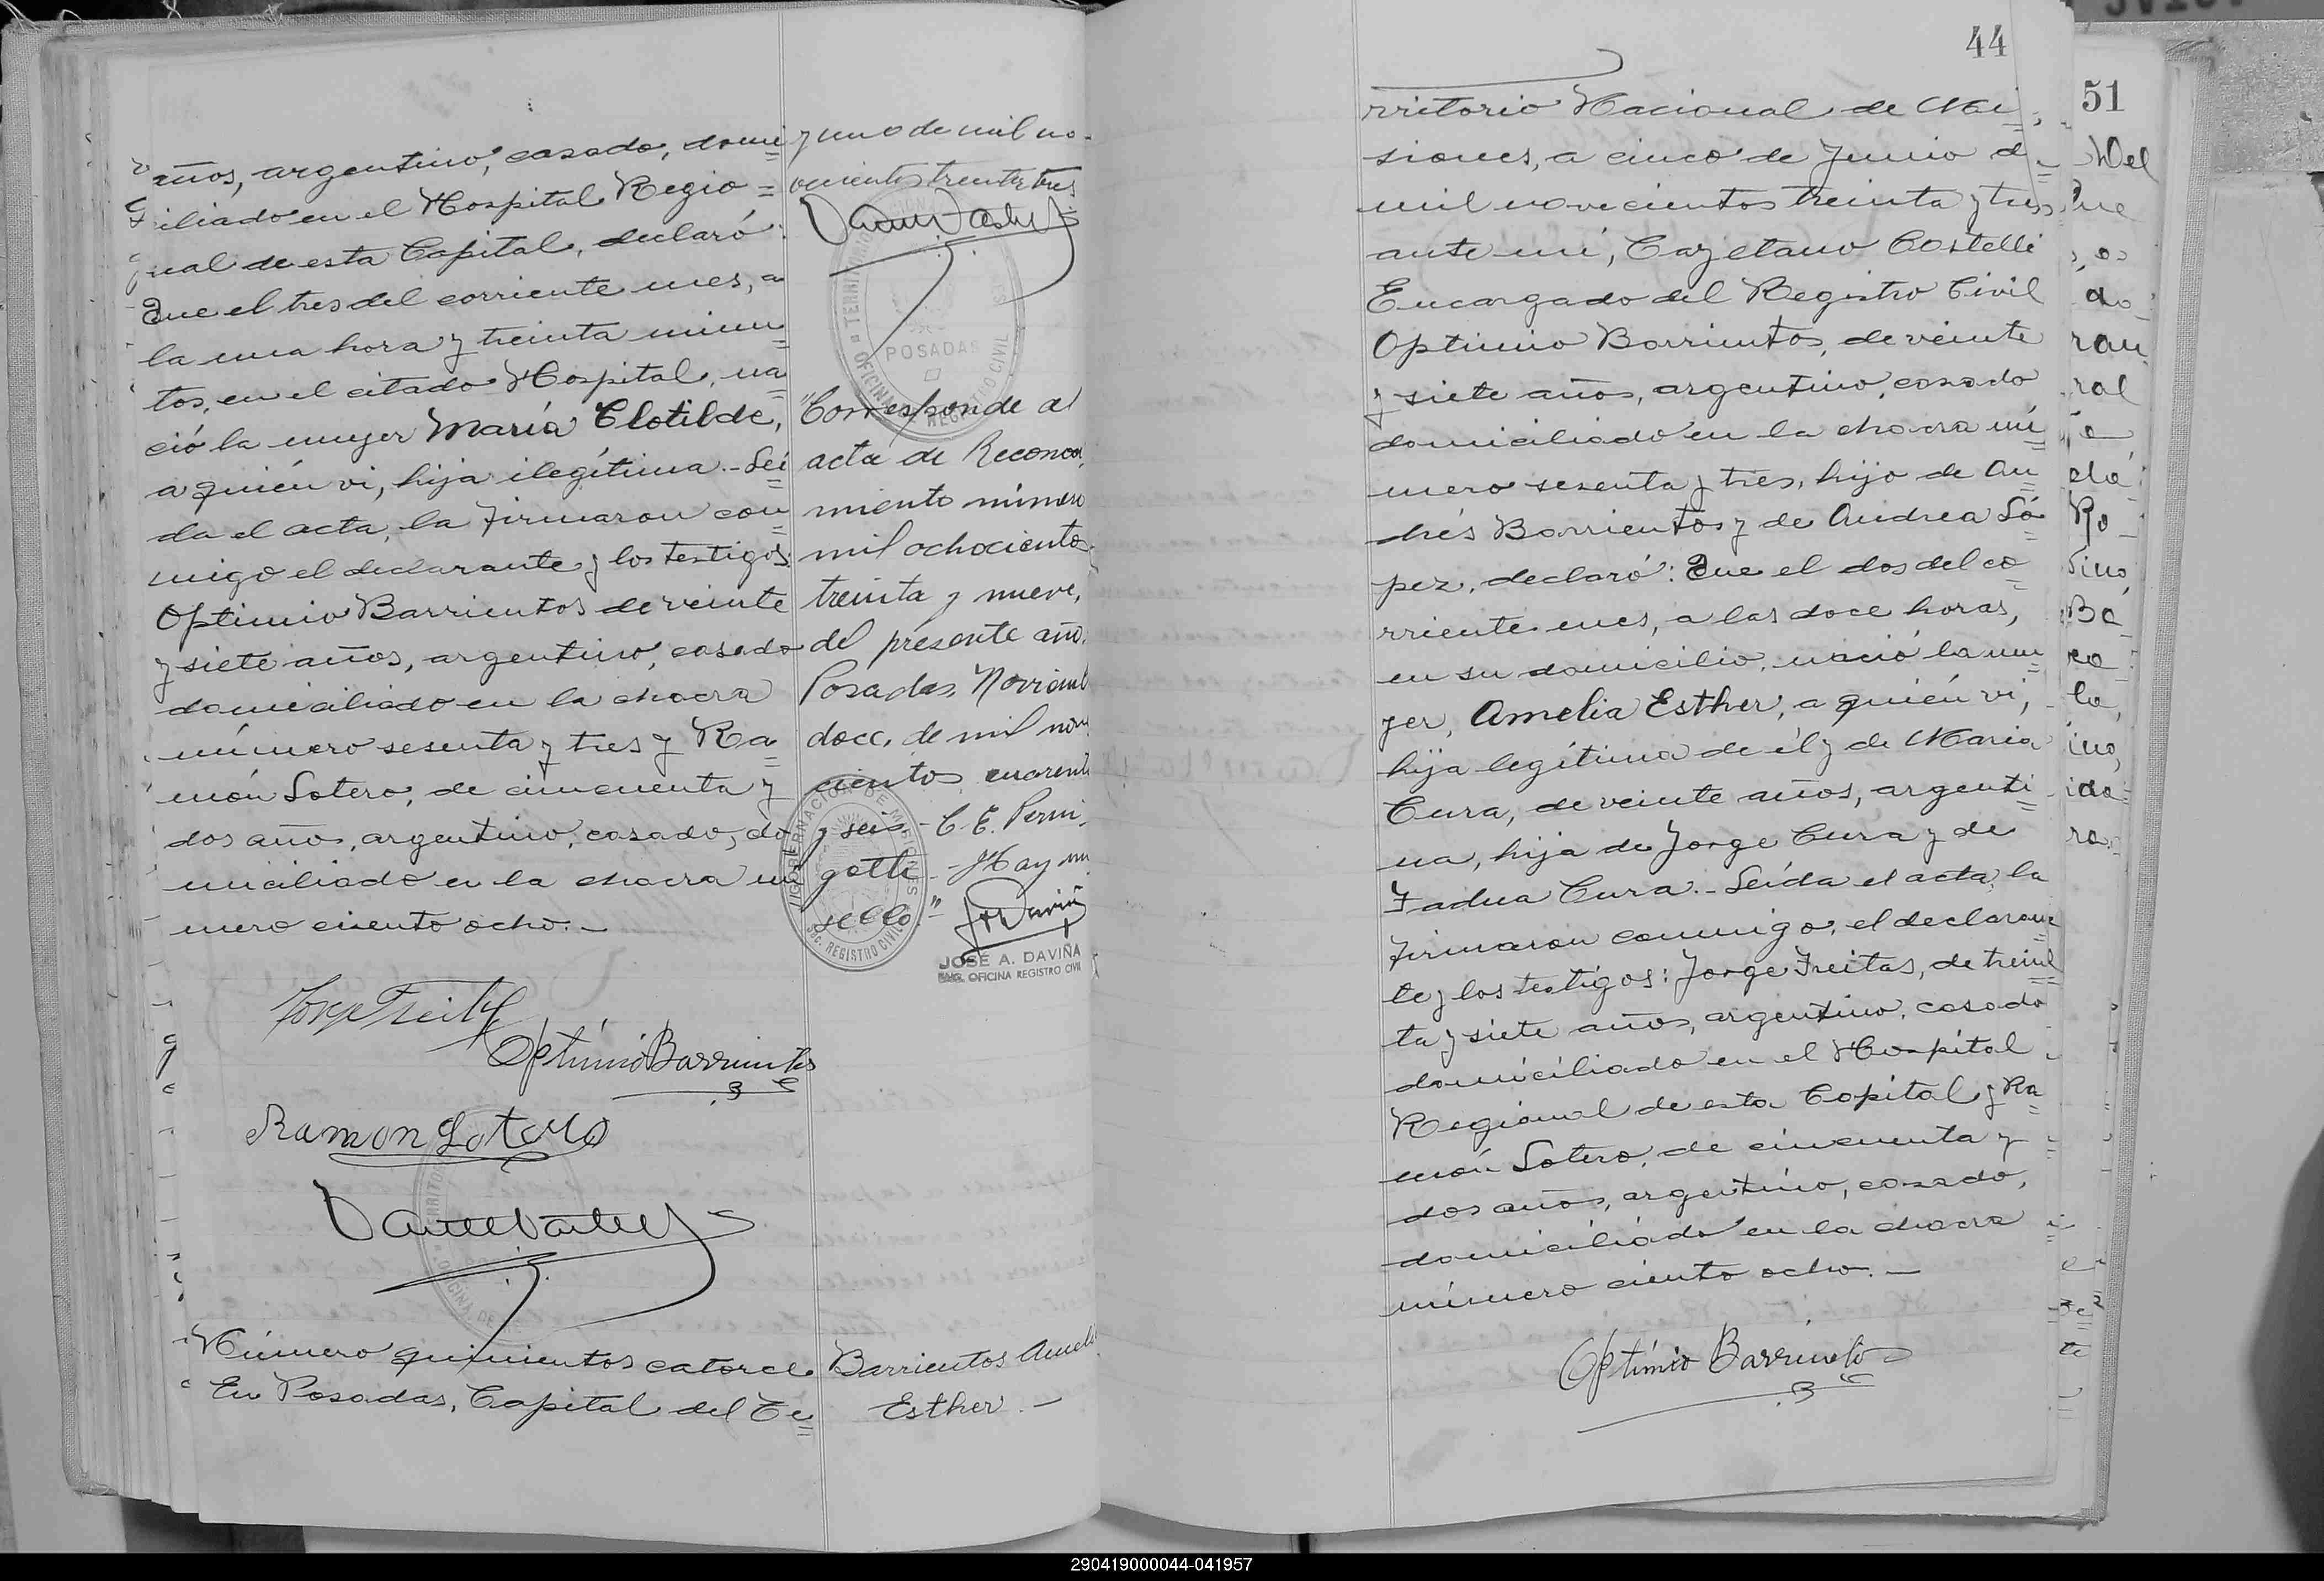 años, argentino, casado, domi=
ciliado en el Hospital Regio=
nal de esta Capital, declaró:
Que el tres del corriente mes, a
la una hora y treinta minu=
tos, en el citado Hospital, na=
ció la mujer María Clotilde,
a quién vi, hija ilegítima.- Leí=
da el acta, la firmaron con=
migo el declarante y los testigos:
Optimio Barrientos de veinte
y siete años, argentino, casado
domiciliado en la chacra
número sesenta y tres y Ra=
món Sotero, de cincuenta y
dos años, argentino, casado, do=
miciliado en la chacra nú=
mero ciento ocho.-
Jorge Freitas
Optimio Barrientos
Ramon Sotero
Número quinientos catorce
En Posadas, Capital del Te=
y uno de mil no-
vecientos treinta y tres
POSADAS
OFICINA REGISTRO CIVIL
"Corresponde al
acta de Reconoci
miento número
mil ochocientos
treinta y nueve,
del presente año.
Posadas, Noviemb
doce, de mil nove
cientos cuarent
y seis - C. E. Perin
gotti - Hay un
sello"
GOBERNACION DE MISIONES
SEC. REGISTRO CIVIL
JOSE A. DAVIÑA
ENC. OFICINA REGISTRO CIVIL
Barrientos Amel
Esther.-
44
rritorio Nacional de Mi=
siones, a cinco de Junio de
mil novecientos treinta y tres,
ante mi, Cayetano Castelli
Encargado del Registro Civil
Optimio Barrientos, de veinte
y siete años, argentino, casado
domiciliado en la chacra nú=
mero sesenta y tres, hijo de An=
drés Barrientos y de Andrea Ló=
pez, declaró: Que el dos del co=
rriente mes, a las doce horas,
en su domicilio, nació la mu=
jer, Amelia Esther, a quién vi,
hija legítima de él y de Maria
Cura, de veinte años, argenti=
na, hija de Jorge Cura y de
Fadua Cura.- Leída el acta, la
firmaron conmigo, el declaran=
te y los testigos: Jorge Freitas, de trein=
ta y siete años, argentino, casado
domiciliado en el Hospital
Regional de esta Capital y Ra=
món Sotero, de cincuenta y
dos años, argentino, casado,
domiciliado en la chacra
número ciento ocho.-
Optimio Barrientos
51
290419000044-041957